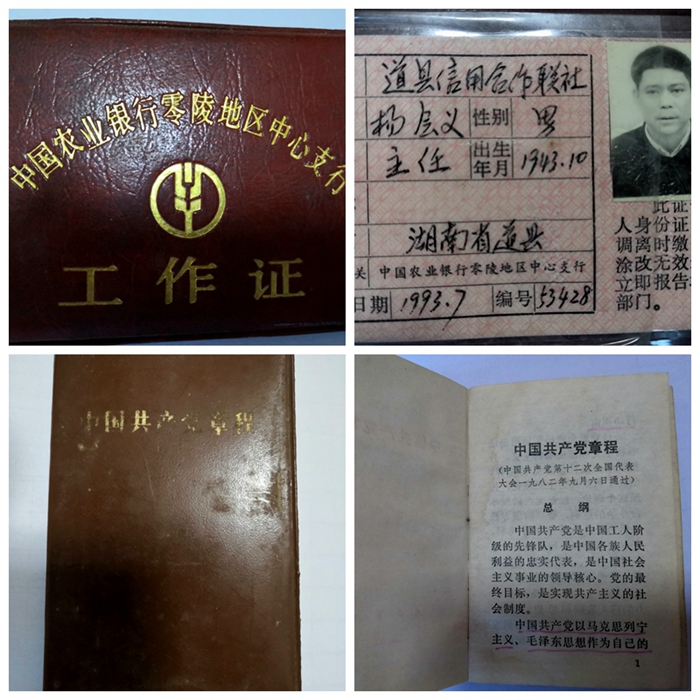 中国农业银行零陵地区中心支行
工作证
道县信用合作联社
杨会义 性别 男
主任 出生年月 1943.10
湖南省道县
关 中国农业银行零陵地区中心支行
日期 1993.7 编号 53428
此证
人身份证
调离时缴
涂改无效
立即报告
部门。
中国共产党章程
中国共产党章程
(中国共产党第十二次全国代表
大会一九八二年九月六日通过)
总 纲
中国共产党是中国工人阶
级的先锋队，是中国各族人民
利益的忠实代表，是中国社会
主义事业的领导核心。党的最
终目标，是实现共产主义的社
会制度。
中国共产党以马克思列宁
主义、毛泽东思想作为自己的
1